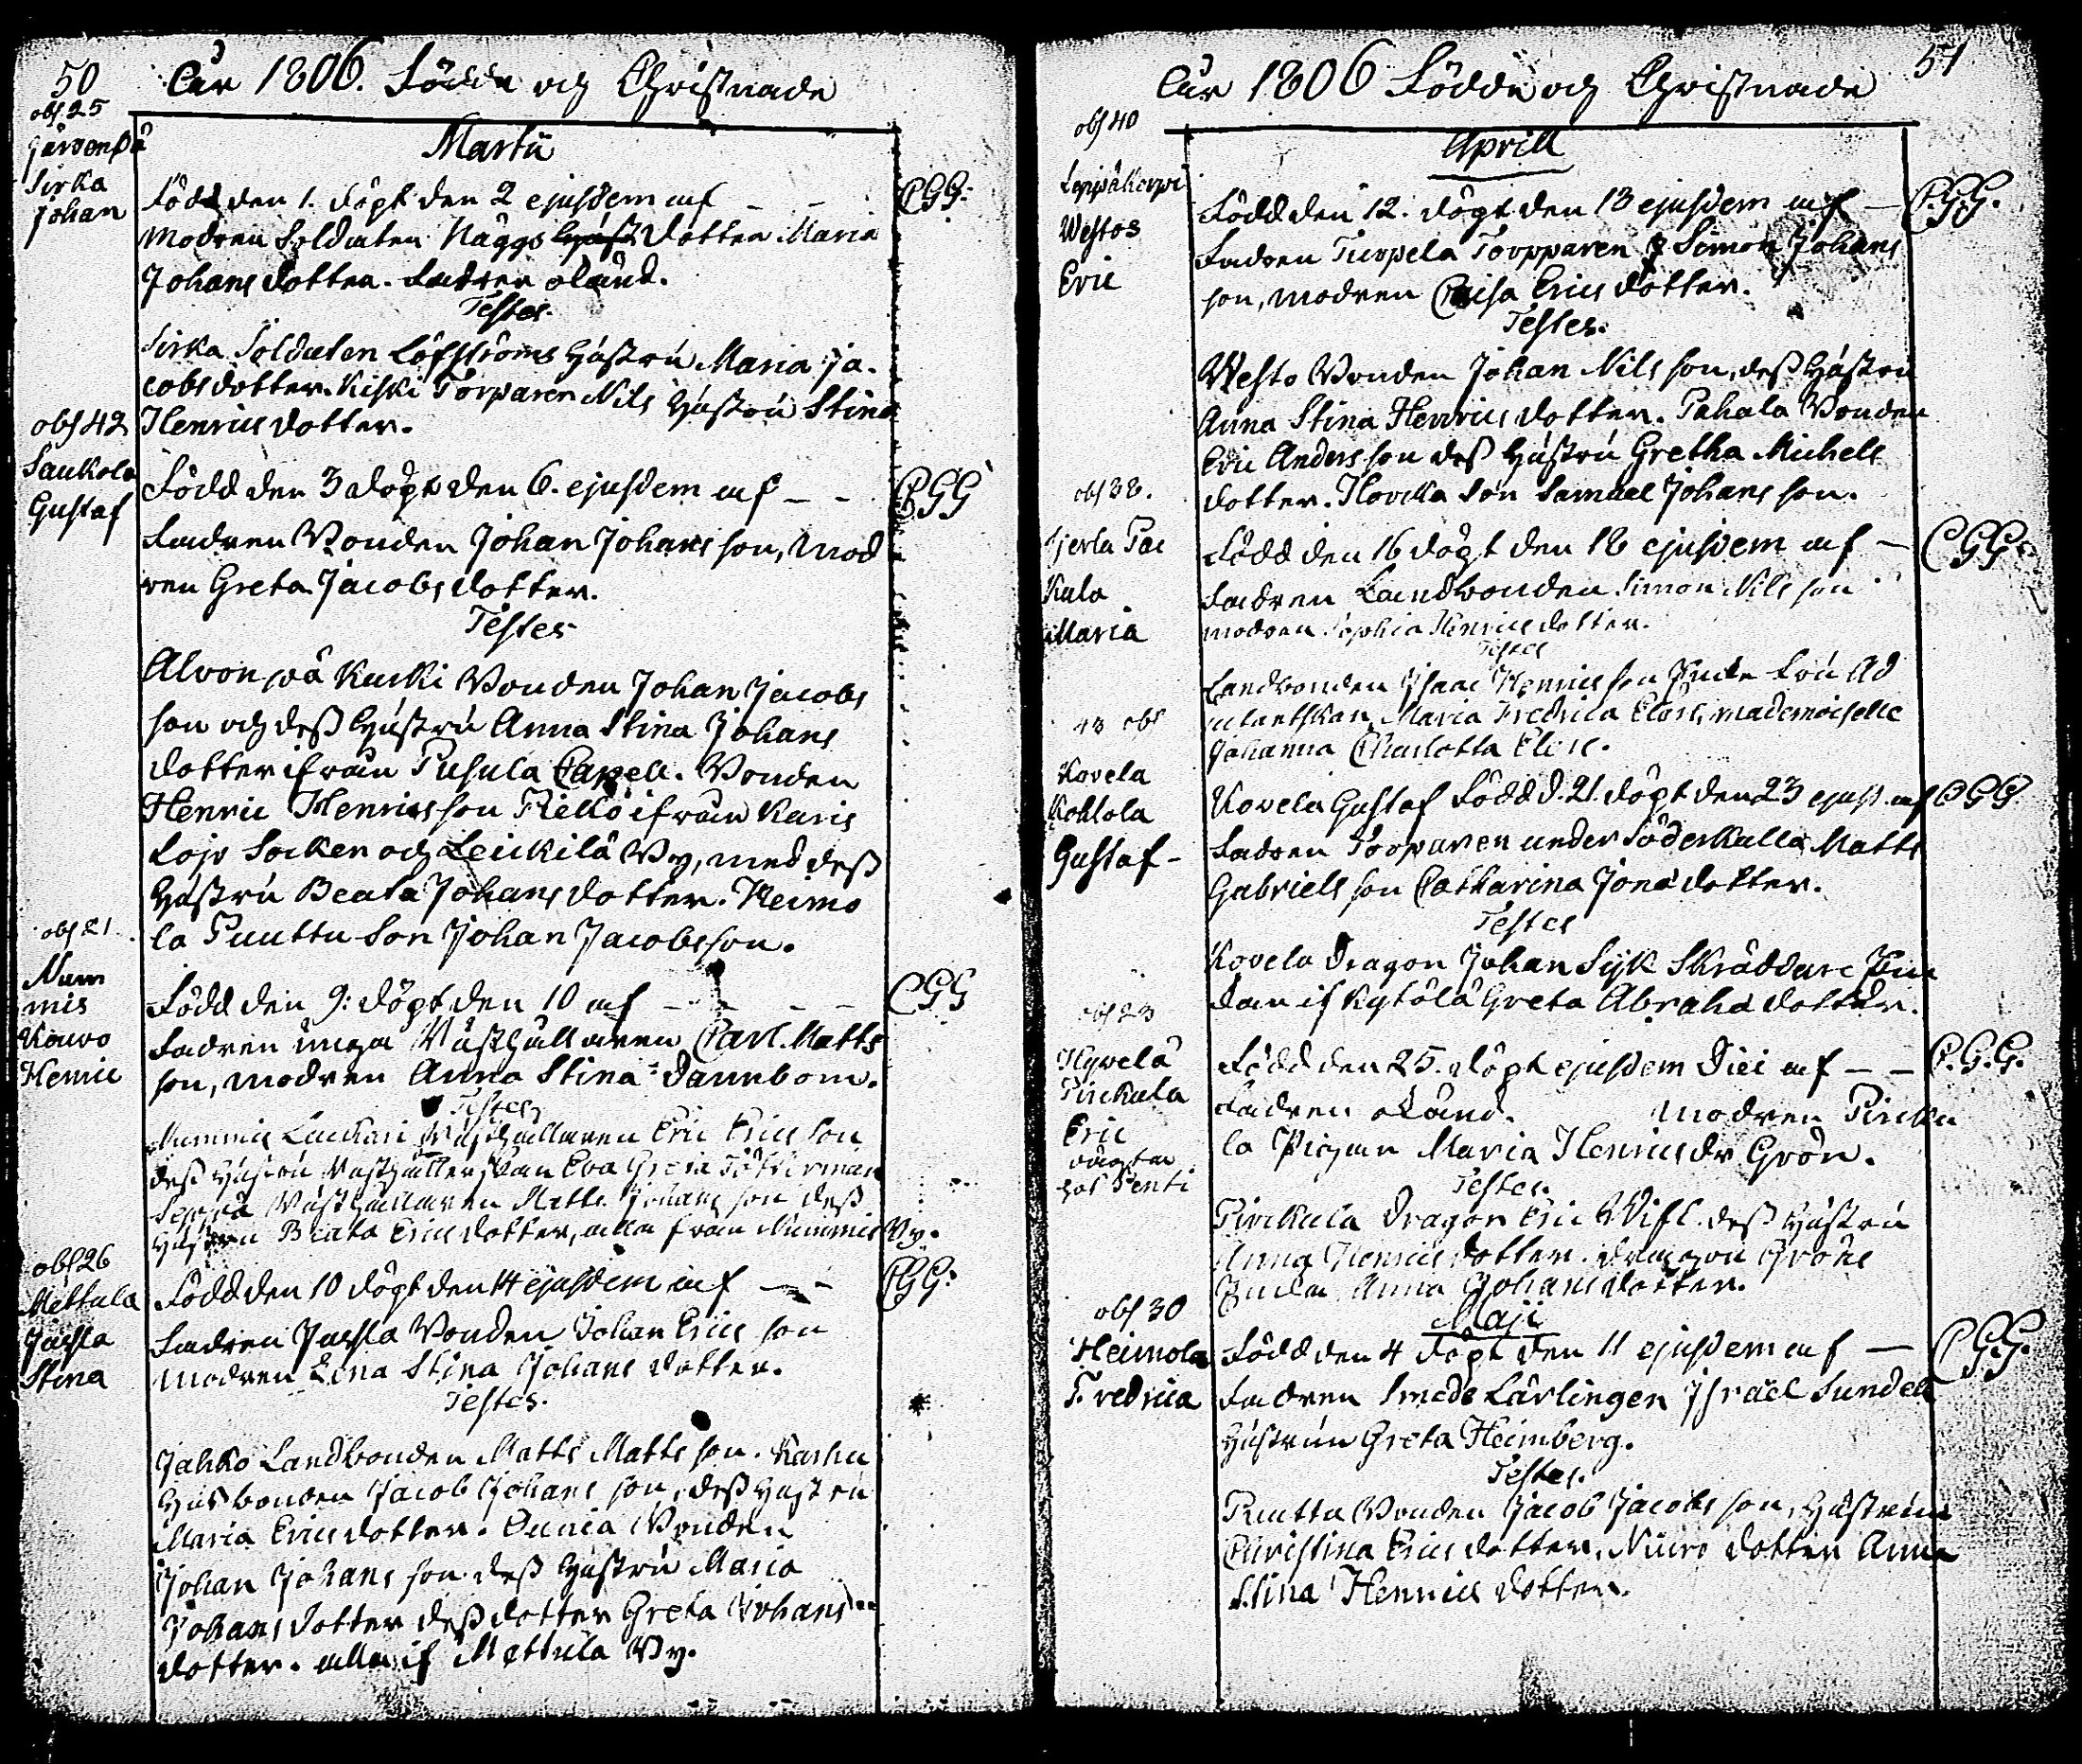 50
Åur 1806. Födde och Christnade
obs 25
Järvenpä
Sirka
Johan
Martii
Född den 1. döpt den 2 ejusdem af CGG.
Modren Soldaten Näggs dotter Maria
Johans dotter. Fadren okänd.
Testes.
Sirka Soldaten Löfströms Hustru Maria Ja-
cobs dotter. Kiski Torparen Nils Hustru Stina
Henrics dotter.
obs 42
Saukola
Gustaf
Född den 3 döpt den 6. ejusdem af CGG
Fadren Bonden Johan Johans son, Mod
ren Greta Jacobs dotter.
Testes
Alvon på Kurki Bonden Johan Jacobs
son och dess Hustru Anna Stina Johans
dotter ifrån Pusula Capell. Bonden
Henric Henrics son Riekö ifrån Karis
Lojo Socken och Leickilä By, med dess
Hustru Beata Johans dotter. Heimo
la Puuttu Son Johan Jacobsson.
obs 21
Num
mis
Kouvo
Henric
Född den 9: döpt den 10 af CGG
Fadren unga Rusthållaren Carl Matts
son, modren Anna Stina Dannbom.
Testes
Nummis Laukari Rusthållaren Eric Erics son
dess Hustru Rusthållerskan Eva Greta
Seppä Rusthållaren Matts Johans son dess
Hustru Beata Erics dotter, alla från Nummis By.
obs 26
Mettula
Jaysla
Stina
Född den 10 döpt den 14 ejusdem af CGG.
Fadren Jaysla Bonden Johan Erics son
modren Lena Stina Johans dotter.
Testes.
Jahko Landbonden Matts Matts son. Karhu
Husbonden Jacob Johans son, dess Hustru
Maria Erics dotter. Ounia Bonden
Johan Johans son dess Hustru Maria
Johans dotter dess dotter Greta Johans
dotter. alla if Mettula By.
51
Åur 1806 Födde och Christnade
obs 40
Leppäkorpi
Westos
Eric
Aprill
Född den 12. döpt den 13 ejusdem af CGG.
Fadren Turpela Torpparen Simon Johans
son, modren Caisa Erics dotter.
Testes.
Westo Bonden Johan Nils son, dess Hustru
Anna Stina Henrics dotter. Pahala Bonden
Eric Anders son dess Hustru Gretha Michels
dotter. Hovika Son Samuel Johans son.
obs 38.
Gerla Pac
Kula
Maria
Född den 16 döpt den 18 ejusdem af CGG.
Fadren Landbonden Simon Nils son
modren Sophia Henrics dotter.
Testes
Landbonden Isaac Henrics son Enke Fru Ad
jutantskan Maria Fredrica Elers, mademoiselle
Johanna Charlotta Elers.
43 obs
Kovela
Kohlola
Gustaf
Kovela Gustaf Född d. 21. döpt den 23 ejusd. af CGG
Fadren Torparen under Söderkulla Matts
Gabriels son Catharina Jona dotter.
Testes
Kovela Dragon Johan Syk Skräddare
if Kytölä Greta Abraha dotter.
obs 23
Hyvelä
Pirckula
Eric
Penti
Född den 25. döpt ejusdem Diei af C.G.G.
Fadren okänd. Modren Pircku
la Pigan Maria Henricsdr Grön.
Testes.
Pirckula Dragon Eric Wifl. dess Hustru
Anna Henrics dotter. Dragon Gröns
Enka Anna Johans dotter.
Maji
obs 30
Heimola
Fredrica
Född den 4 döpt den 11 ejusdem af CGG.
Fadren Smeds Lärlingen Israël Sundell
Hustrun Greta Heimberg.
Testes.
Ruttu Bonden Jacob Jacobs son, Hustrun
Christina Erics dotter, Niuro dotter Anna
Stina Henrics dotter.